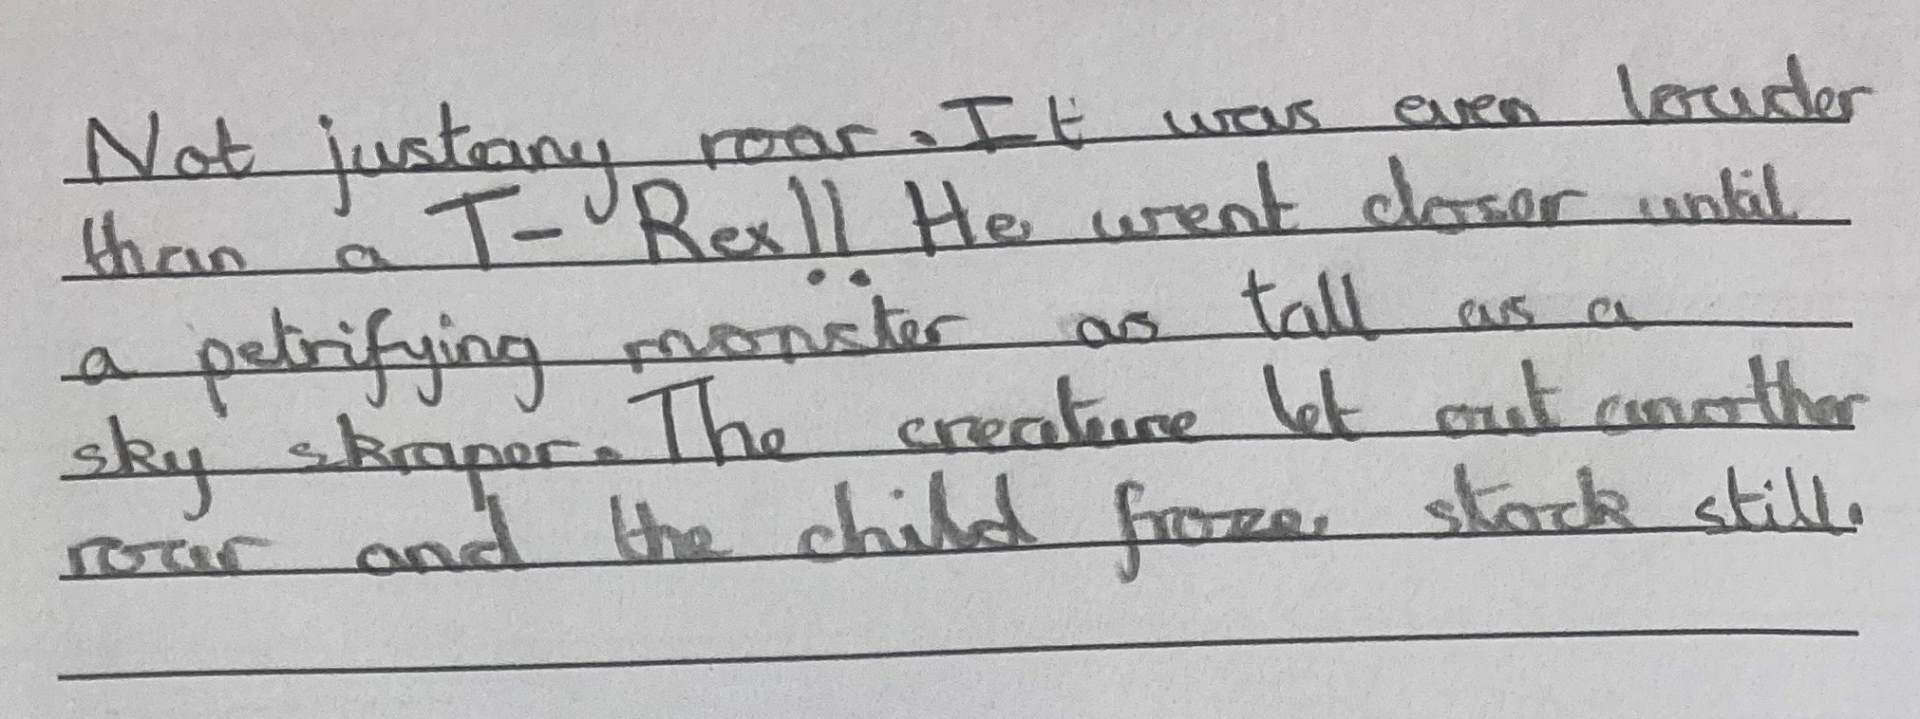 Not justany roar. It was even louder
than a T-Rex!! He went closer until
a petrifying monster as tall as a
sky skraper. The creature let out another
roar and the child froze stock still.